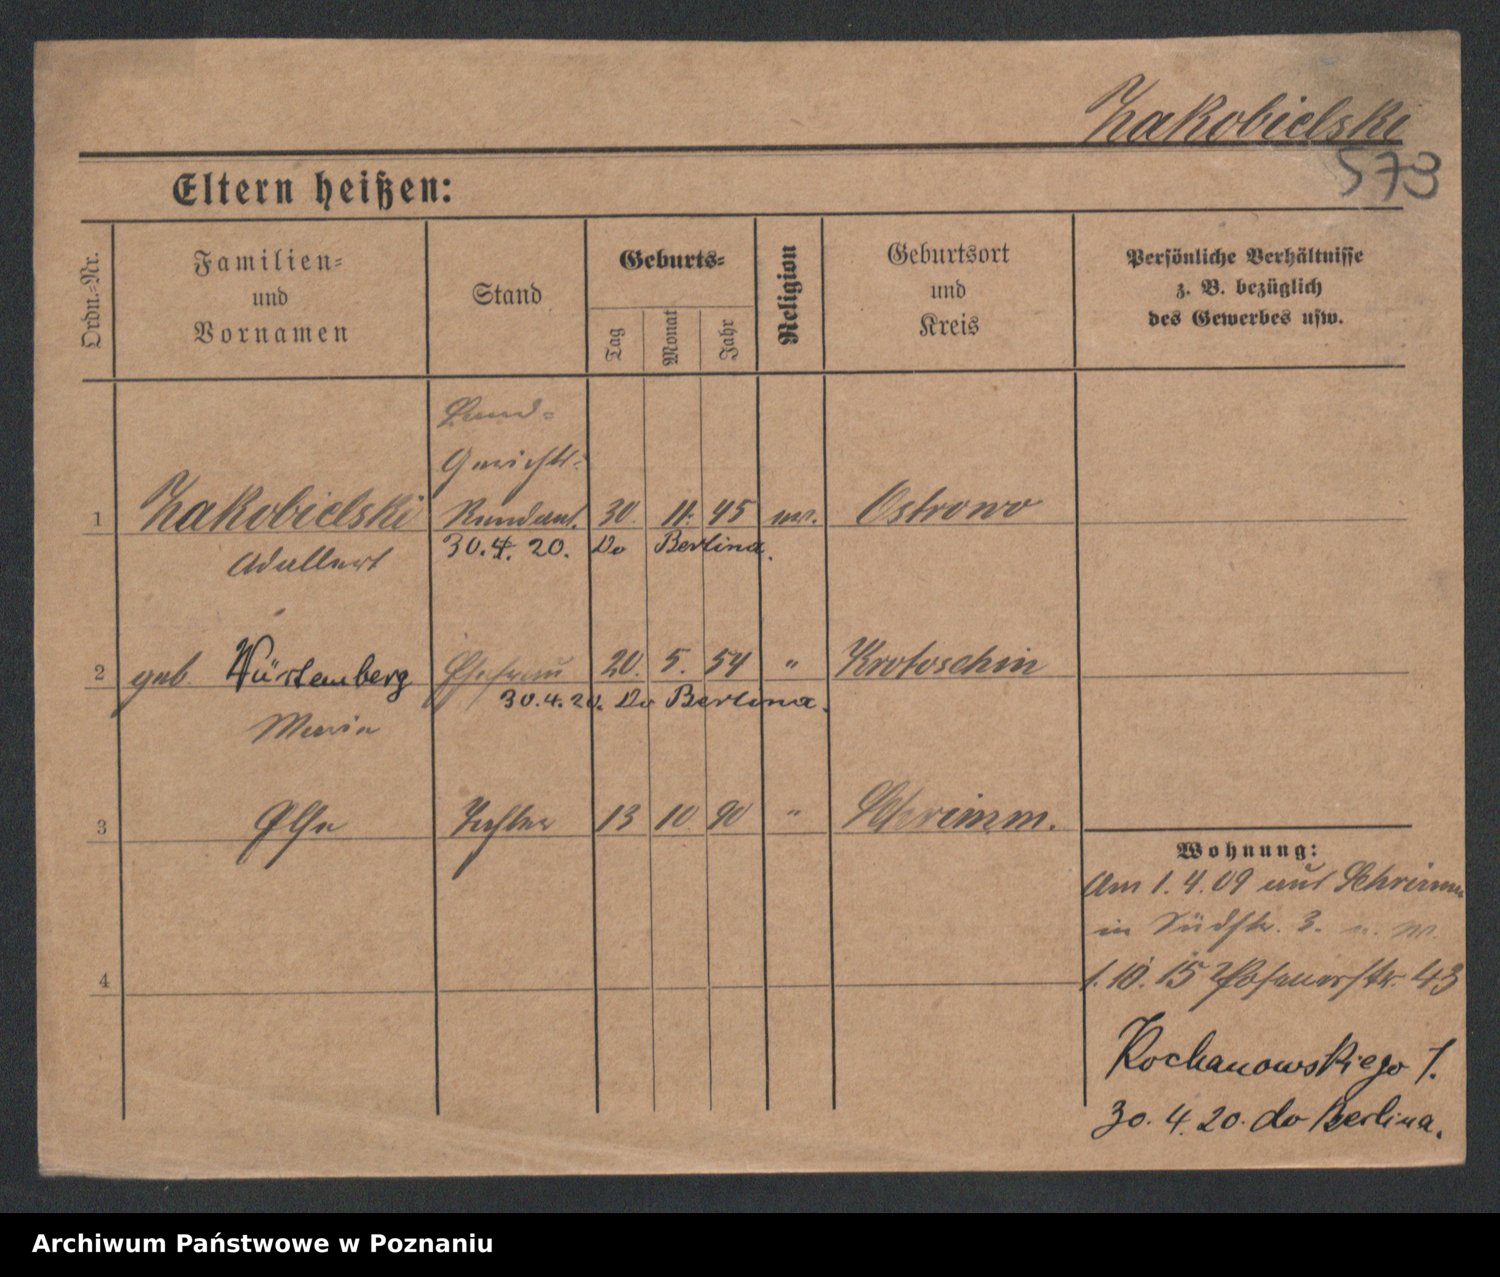 Zakobielski
573
Eltern heißen:
Ordn.-Nr.
Familien-
und
Vornamen
Stand
Geburts-
Tag
Monat
Jahr
Religion
Geburtsort
und
Kreis
Persönliche Verhältnisse
z. B. bezüglich
des Gewerbes usw.
Land-
Gerichts-
1 Zakobielski Rendant. 30. 11. 45 ev. Ostrowo
Adalbert 30.4. 20. Do Berlina.
2 geb. Würtemberg Ehefrau 20. 5. 54 " Krotoschin
30.4.20. Do Berlina.
Maria
3 Else Tochter 13 10 90 " Schrimm.
Wohnung:
Am 1.4.09 aus Schrimm
in Südstr. 3.
4
1.10.15 Posenerstr. 43
Kochanowskiego 7.
30.4.20. do Berlina.
Archiwum Państwowe w Poznaniu